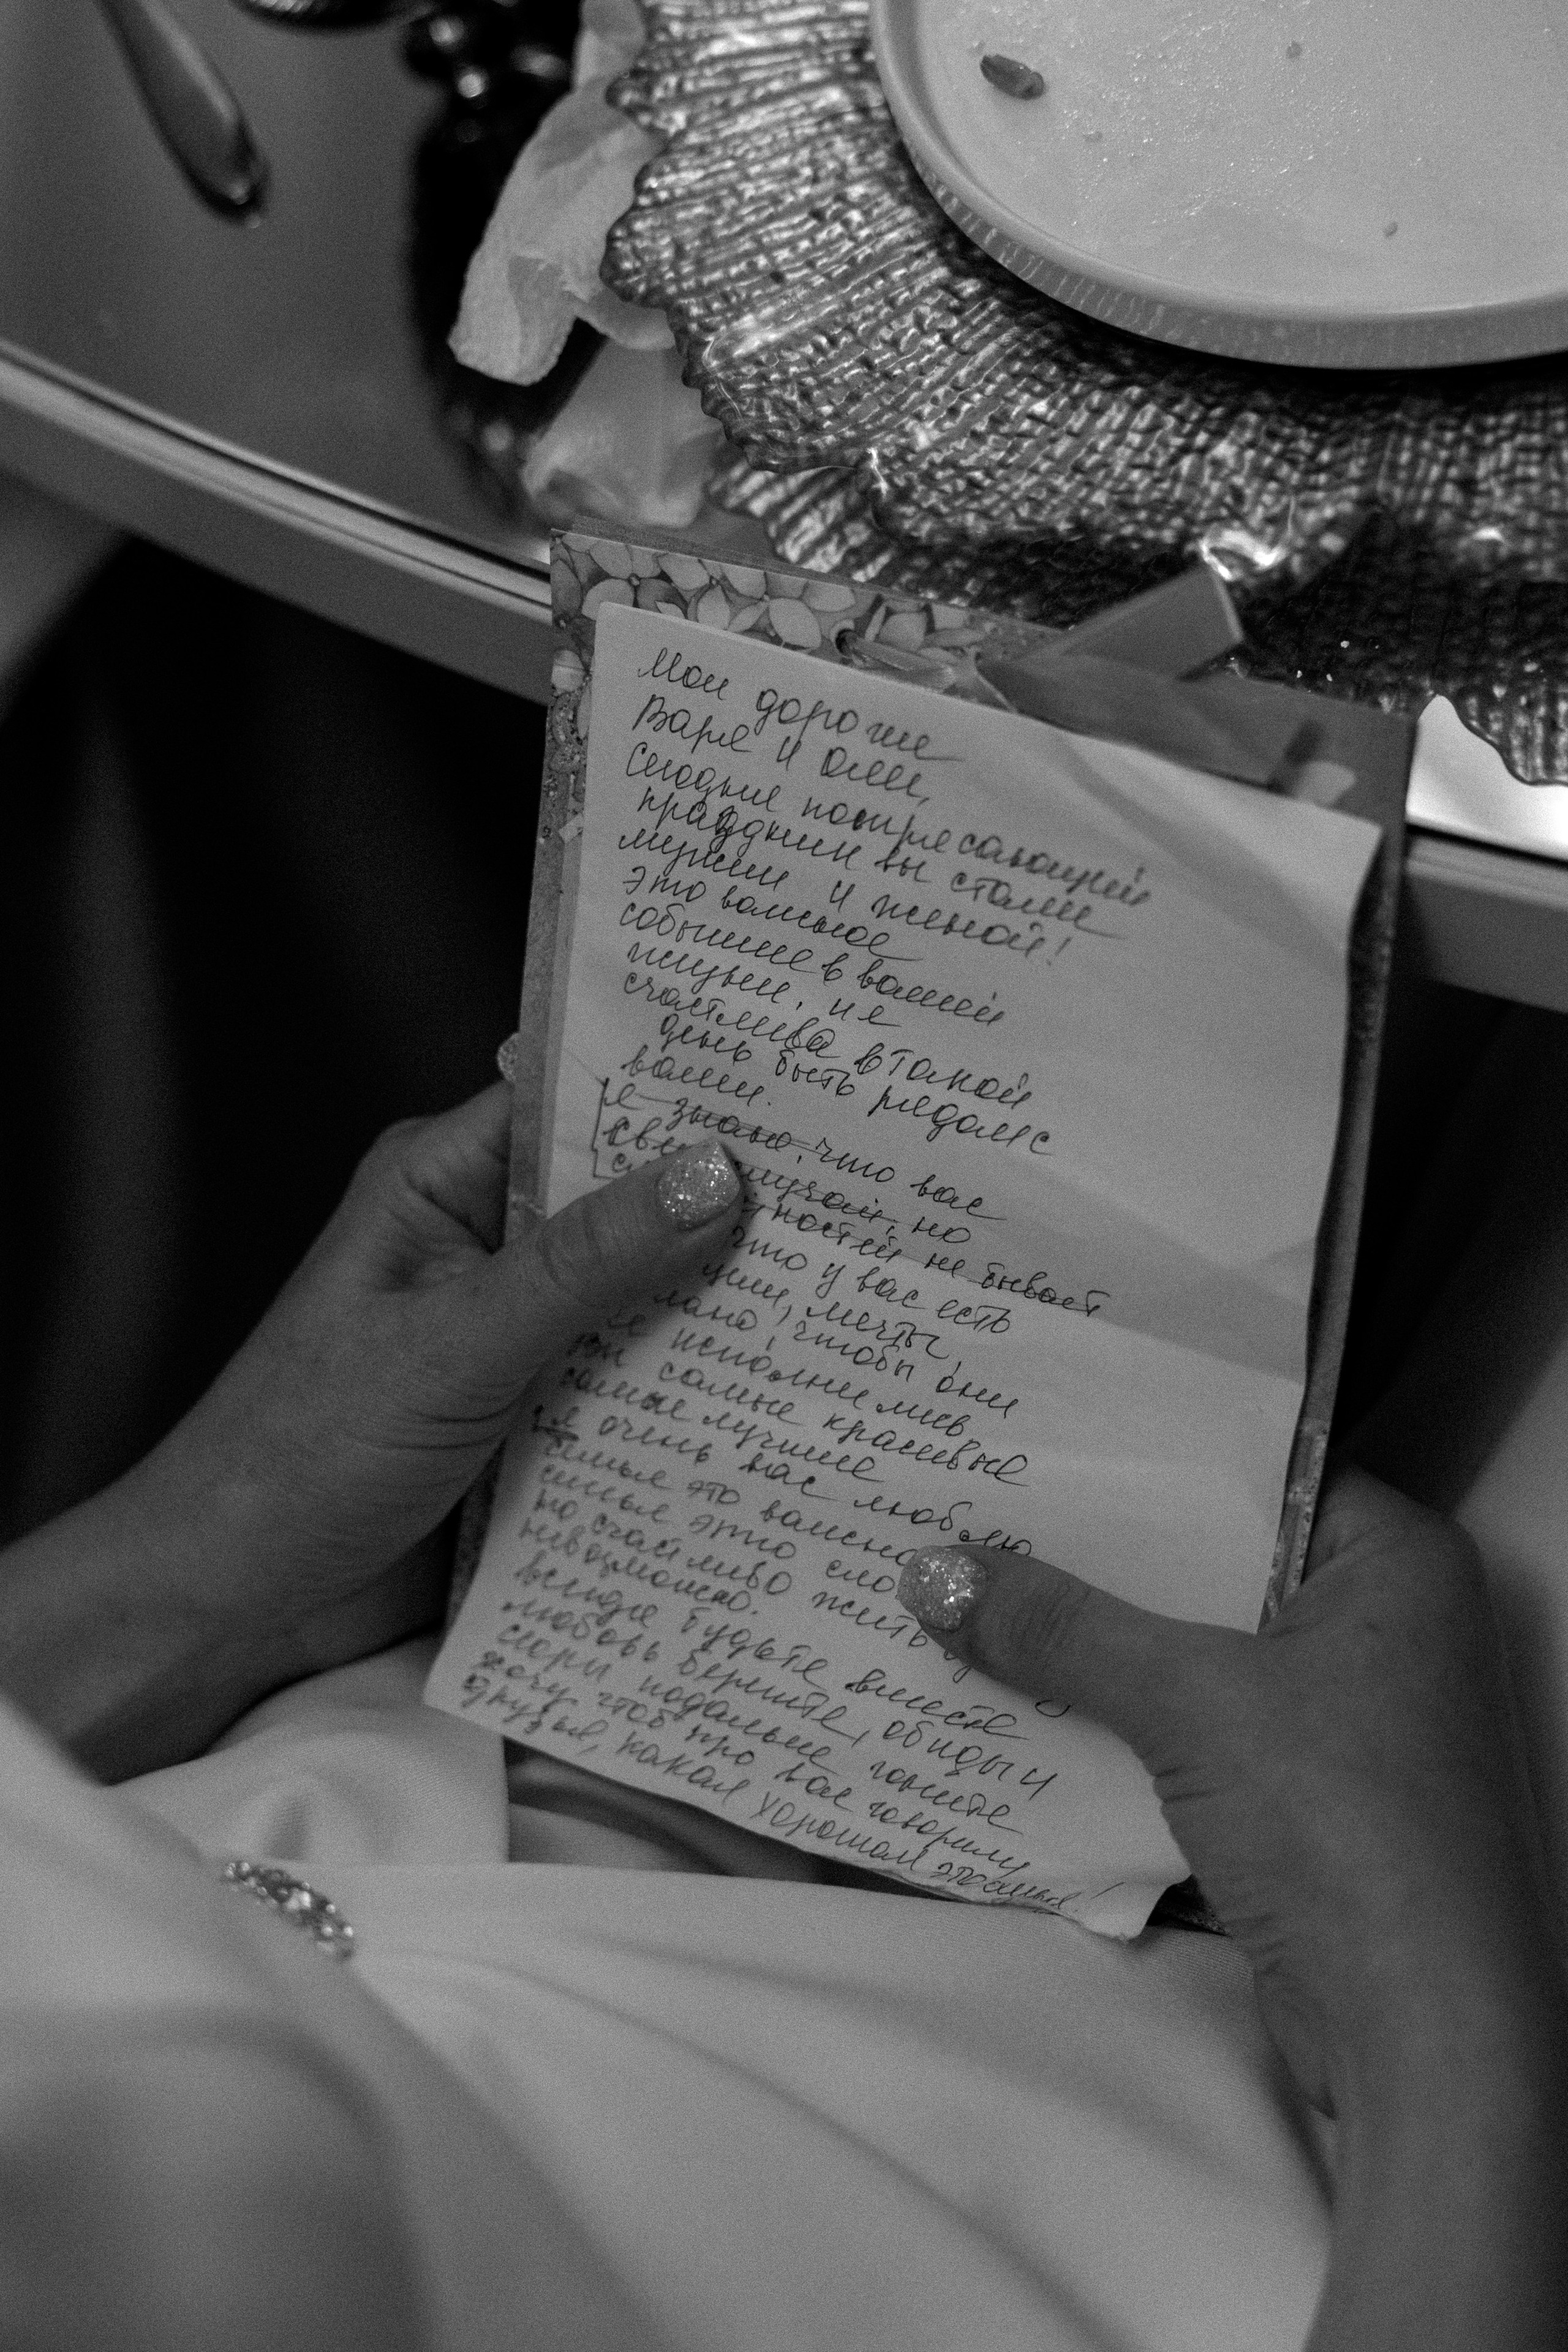 Мои дорогие
Варя и Оли,
Сегодня потрясающий
праздник вы стали
мужем и женой!
Это важное
событие в вашей
жизни. и я
счастлива в такой
день быть рядом с
вами.
я знаю, что вас
случай, но
ностей не бывает
что у вас есть
мечты,
чтобы они
исполнились
самые красивые
самые лучшие
я очень вас люблю
семья это важно
семья это
но счастливо жить
невозможно.
везде будьте вместе
любовь берегите, обиды и
ссоры подальше гоните
хочу чтоб про вас говорили
друзья, какая хорошая это семья!